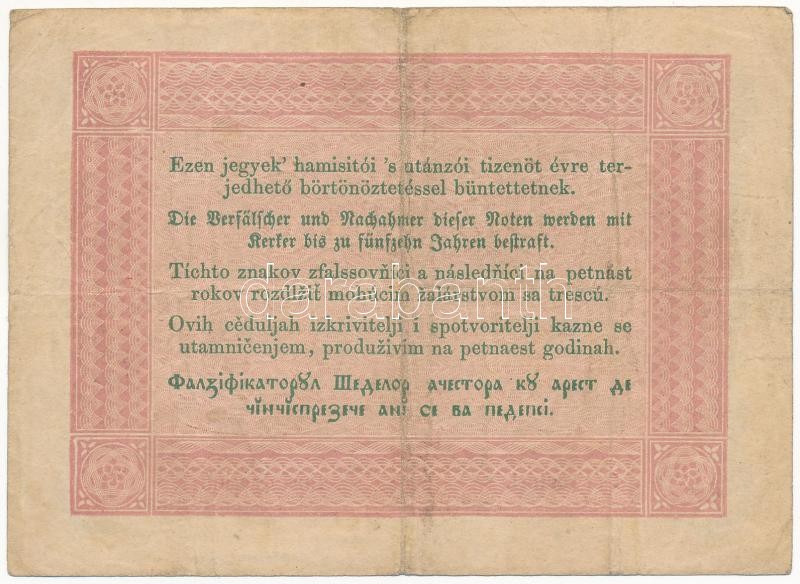 Ezen jegyek' hamisitói 's utánzói tizenöt évre ter-
jedhető börtönöztetéssel büntettetnek.
Die Verfälscher und Nachahmer dieser Noten werden mit
Kerker bis zu fünfzehn Jahren bestraft.
Tíchto znakov zfalssovňíci a následňíci na petnást
rokov rozdlžiť mohúcim žalárstvom sa trescú.
darabanth
Ovih cěduljah izkrivitelji í spotvoritelji kazne se
utamničenjem, produživim na petnaest godinah.
Фалзіфікаторꙋл Шеделор ачестора кꙋ арест де
чінчіспрезече ані се ва педепсі.